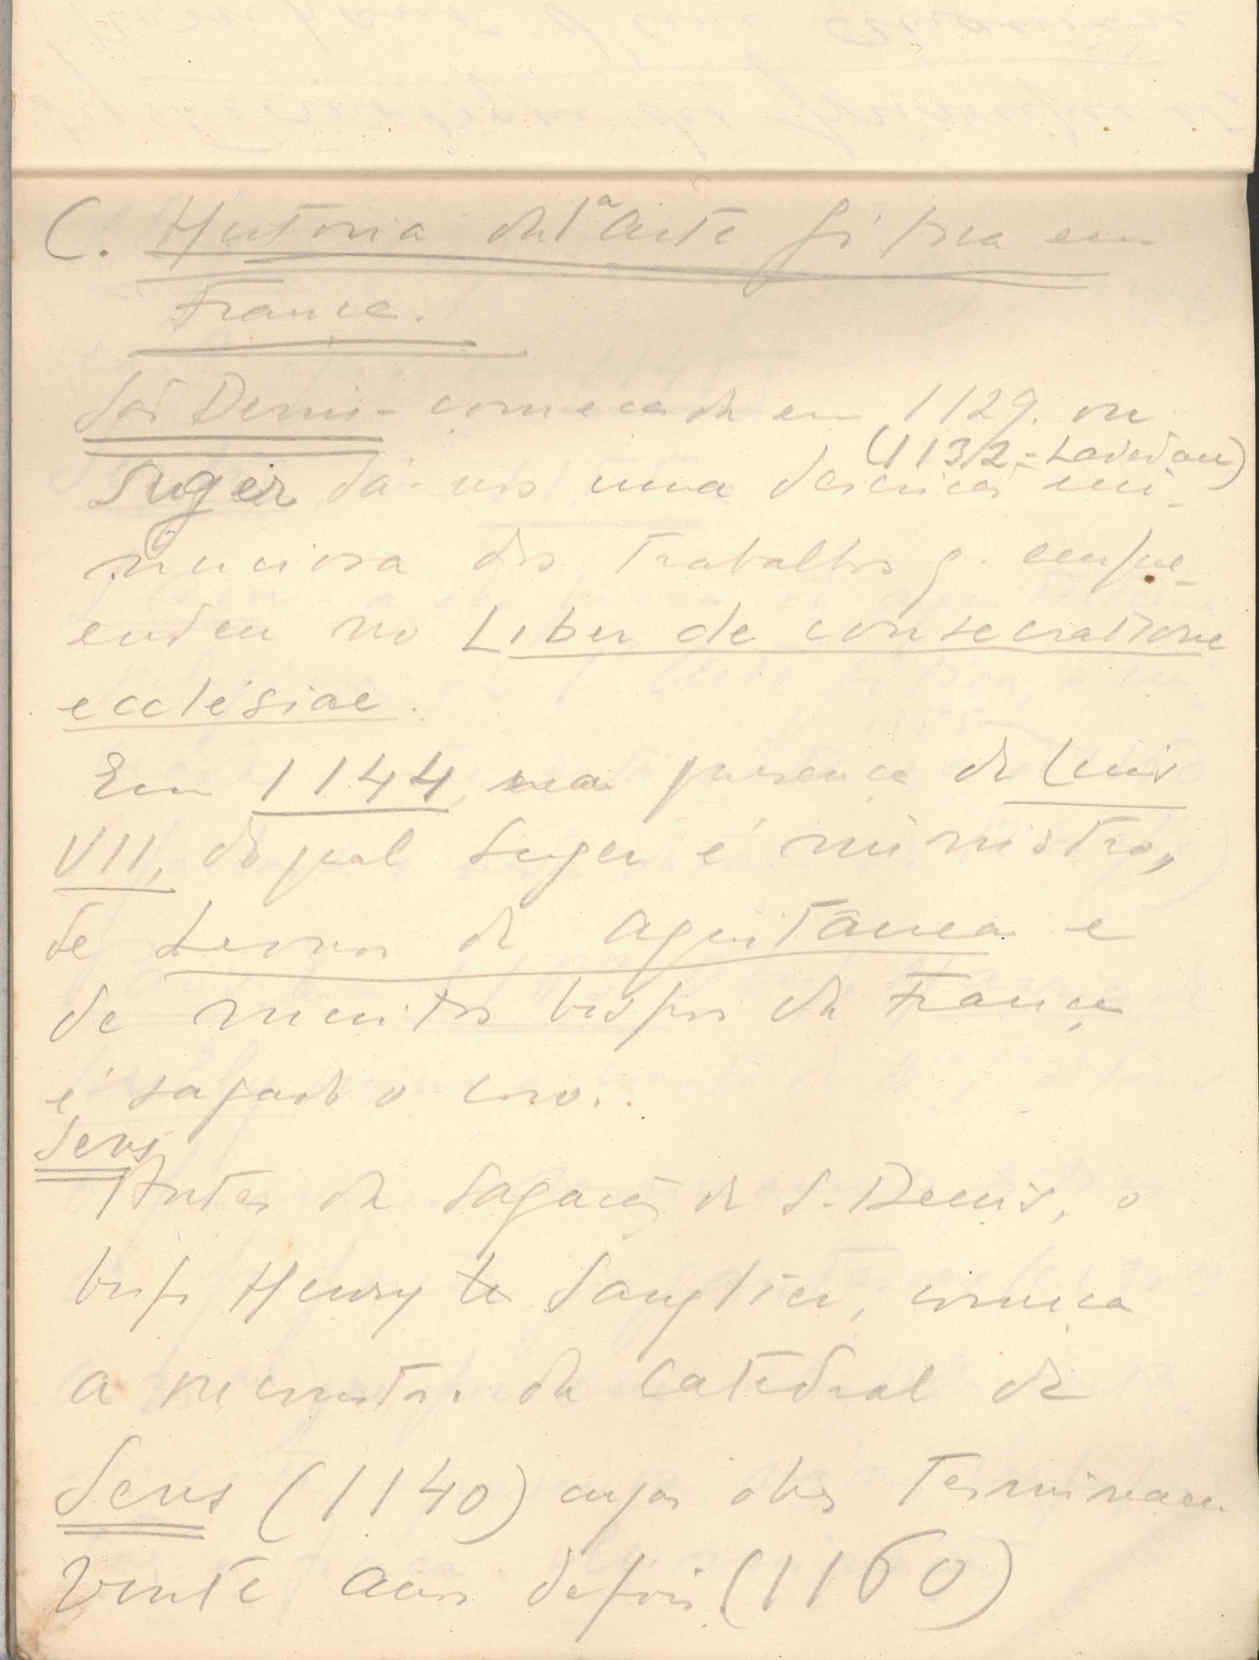 C. História da 1ª arte gótica em
França.
São Denis - começada em 1129. ou
(1132 - Lavedan)
Suger dá-nos uma descrição mi-
nuciosa dos trabalhos q. empre-
endeu no Liber de consecratione
ecclésiae.
Em 1144, na presença de Luis
VII, do qual Suger é ministro,
de Leonor de Aquitânea e
de muitos bispos da França
é sagrado o coro.
Sens
Antes da Sagração de S. Denis, o
bispo Henry le Sanglier, começa
a reconstr. da Catedral de
Sens (1140) cujas obras terminam
vinte anos depois (1160)